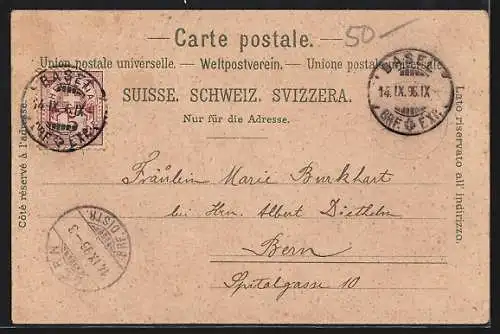 50—
Carte postale.
Union postale universelle. – Weltpostverein. – Unione postale universale
SUISSE. SCHWEIZ. SVIZZERA.
Nur für die Adresse.
BASEL
14.IX.96.IX
BRF. EXP.
BASEL
14.IX.96.IX
BRF. EXP.
Côté réservé à l'adresse.
Lato riservato all' indirizzo.
Fräulein Marie Burkhart
bei Hrn. Albert Diethelm
Bern
Spitalgasse 10
BERN
14.IX.96–3
BRF. DISTR.